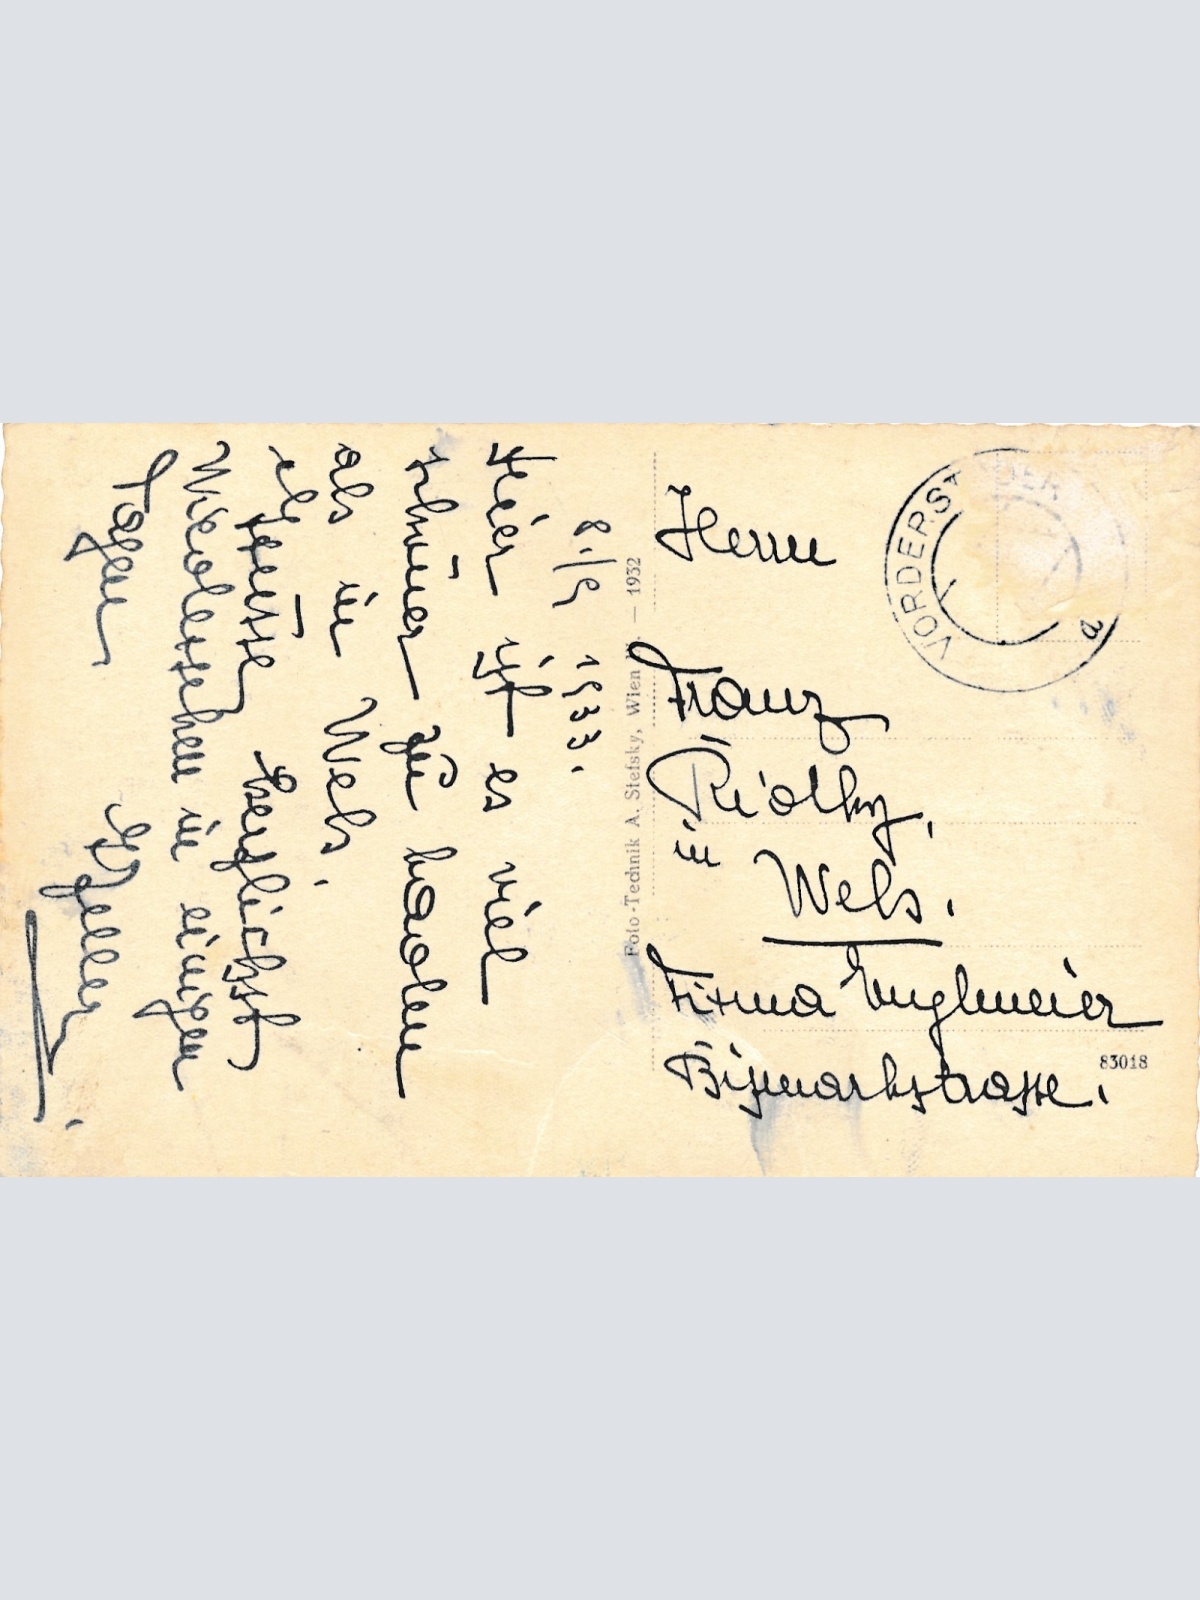 8./9 1933.
Hier ist es viel
schöner zu baden
als in Wels.
herzlichst
Wiedersehen in einigen
Tagen
Herrn
Franz
in
Wels.
Firma Englmeier
Bismarkstrasse.
VORDERST
a
Foto-Technik A. Stefsky, Wien — 1932
83018